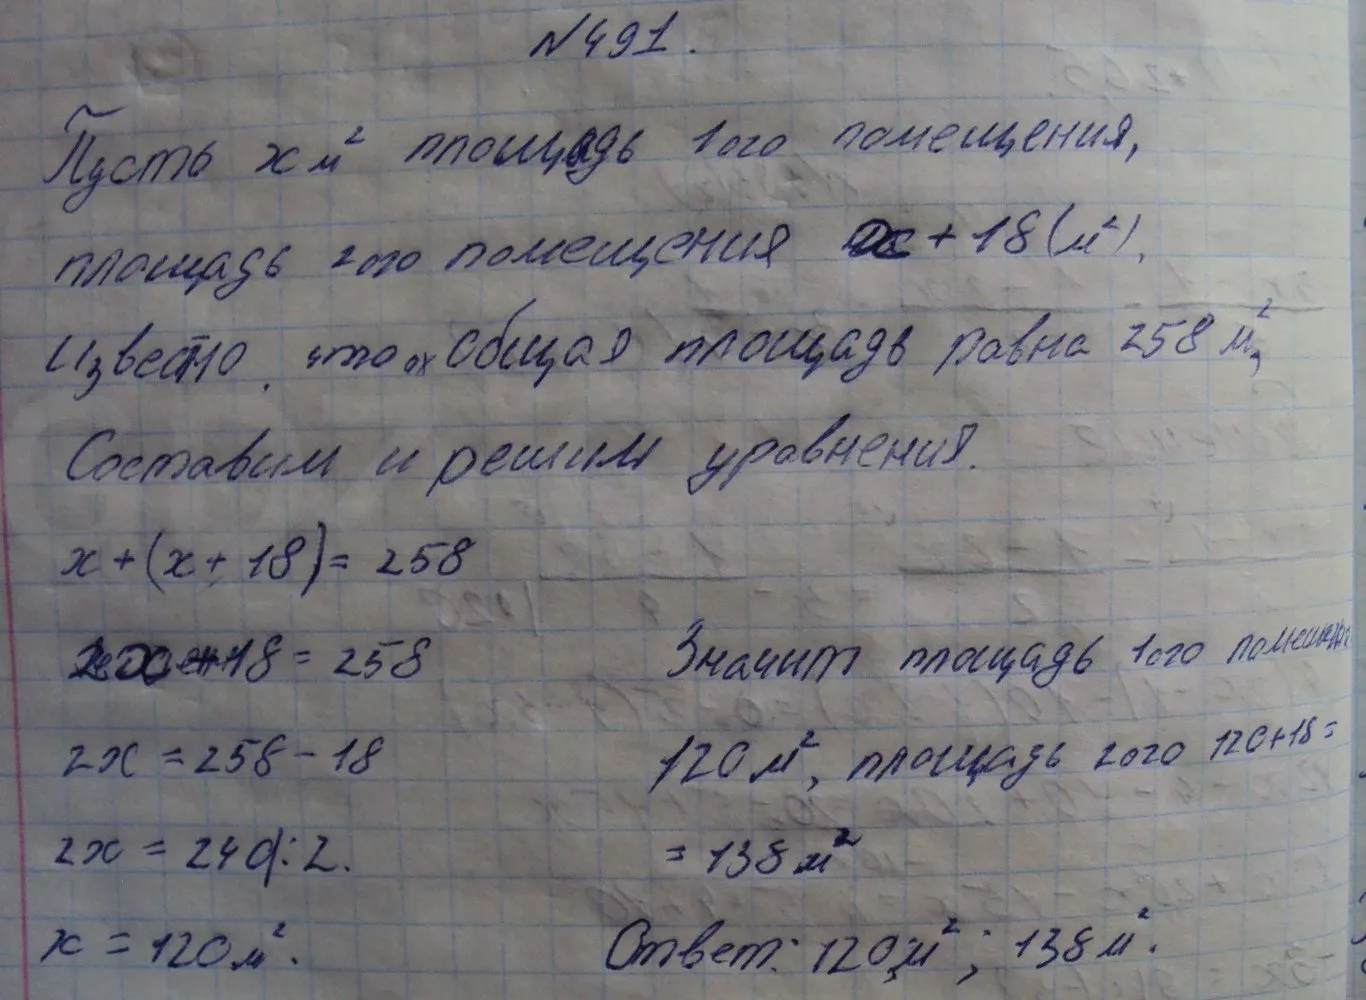 №491.
Пусть х м² площадь 1ого помещения,
площадь 2ого помещения х + 18 (м²).
Известно, что общая площадь равна 258 м²,
Составим и решим уравнения.
х + (х + 18) = 258
2х + 18 = 258
2х = 258 - 18
2х = 240 : 2.
х = 120 м².
Значит площадь 1ого помещения
120 м², площадь 2ого 120+18=
= 138 м²
Ответ: 120 м²; 138 м².